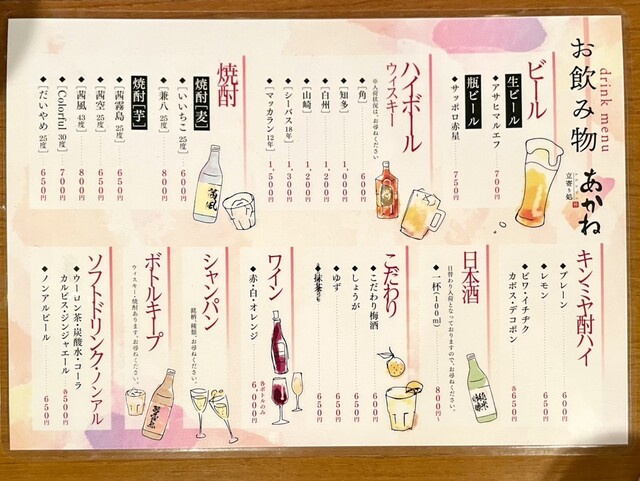 お飲み物
drink menu
立寄り処
あかね
ビール
生ビール
◆アサヒマルエフ 700円
瓶ビール
◆サッポロ赤星 750円
ハイボール
ウィスキー
※入荷状況は、お尋ねください
◆[角] 600円
◆[知多] 1,000円
◆[白州] 1,200円
◆[山崎] 1,200円
◆[シーバス18年] 1,300円
◆[マッカラン12年] 1,500円
焼酎
焼酎[麦]
◆いいちこ 25度 600円
◆兼八 25度 800円
焼酎[芋]
◆茜霧島 25度 650円
◆茜空 25度 650円
◆茜風 43度 800円
◆[Colorful 30度] 700円
◆[だいやめ 25度] 650円
茜風
キンミヤ酎ハイ
◆プレーン 600円
◆レモン 650円
◆ビワ・イチヂク
カボス・デコポン 各650円
日本酒
日替わり入荷となっておりますので、お尋ねください。
◆一杯(100ml) 800円~
純米
こだわり
◆こだわり梅酒 600円
◆しょうが 650円
◆ゆず 650円
◆抹茶 650円
ワイン
◆赤・白・オレンジ 各ボトルのみ 6,000円
シャンパン
銘柄、種類、お尋ねください。
ボトルキープ
ウィスキー・焼酎あります。お尋ねください。
茜霧島
ソフトドリンク・ノンアル
◆ウーロン茶・炭酸水・コーラ
カルピス・ジンジャエール 各500円
◆ノンアルビール 650円